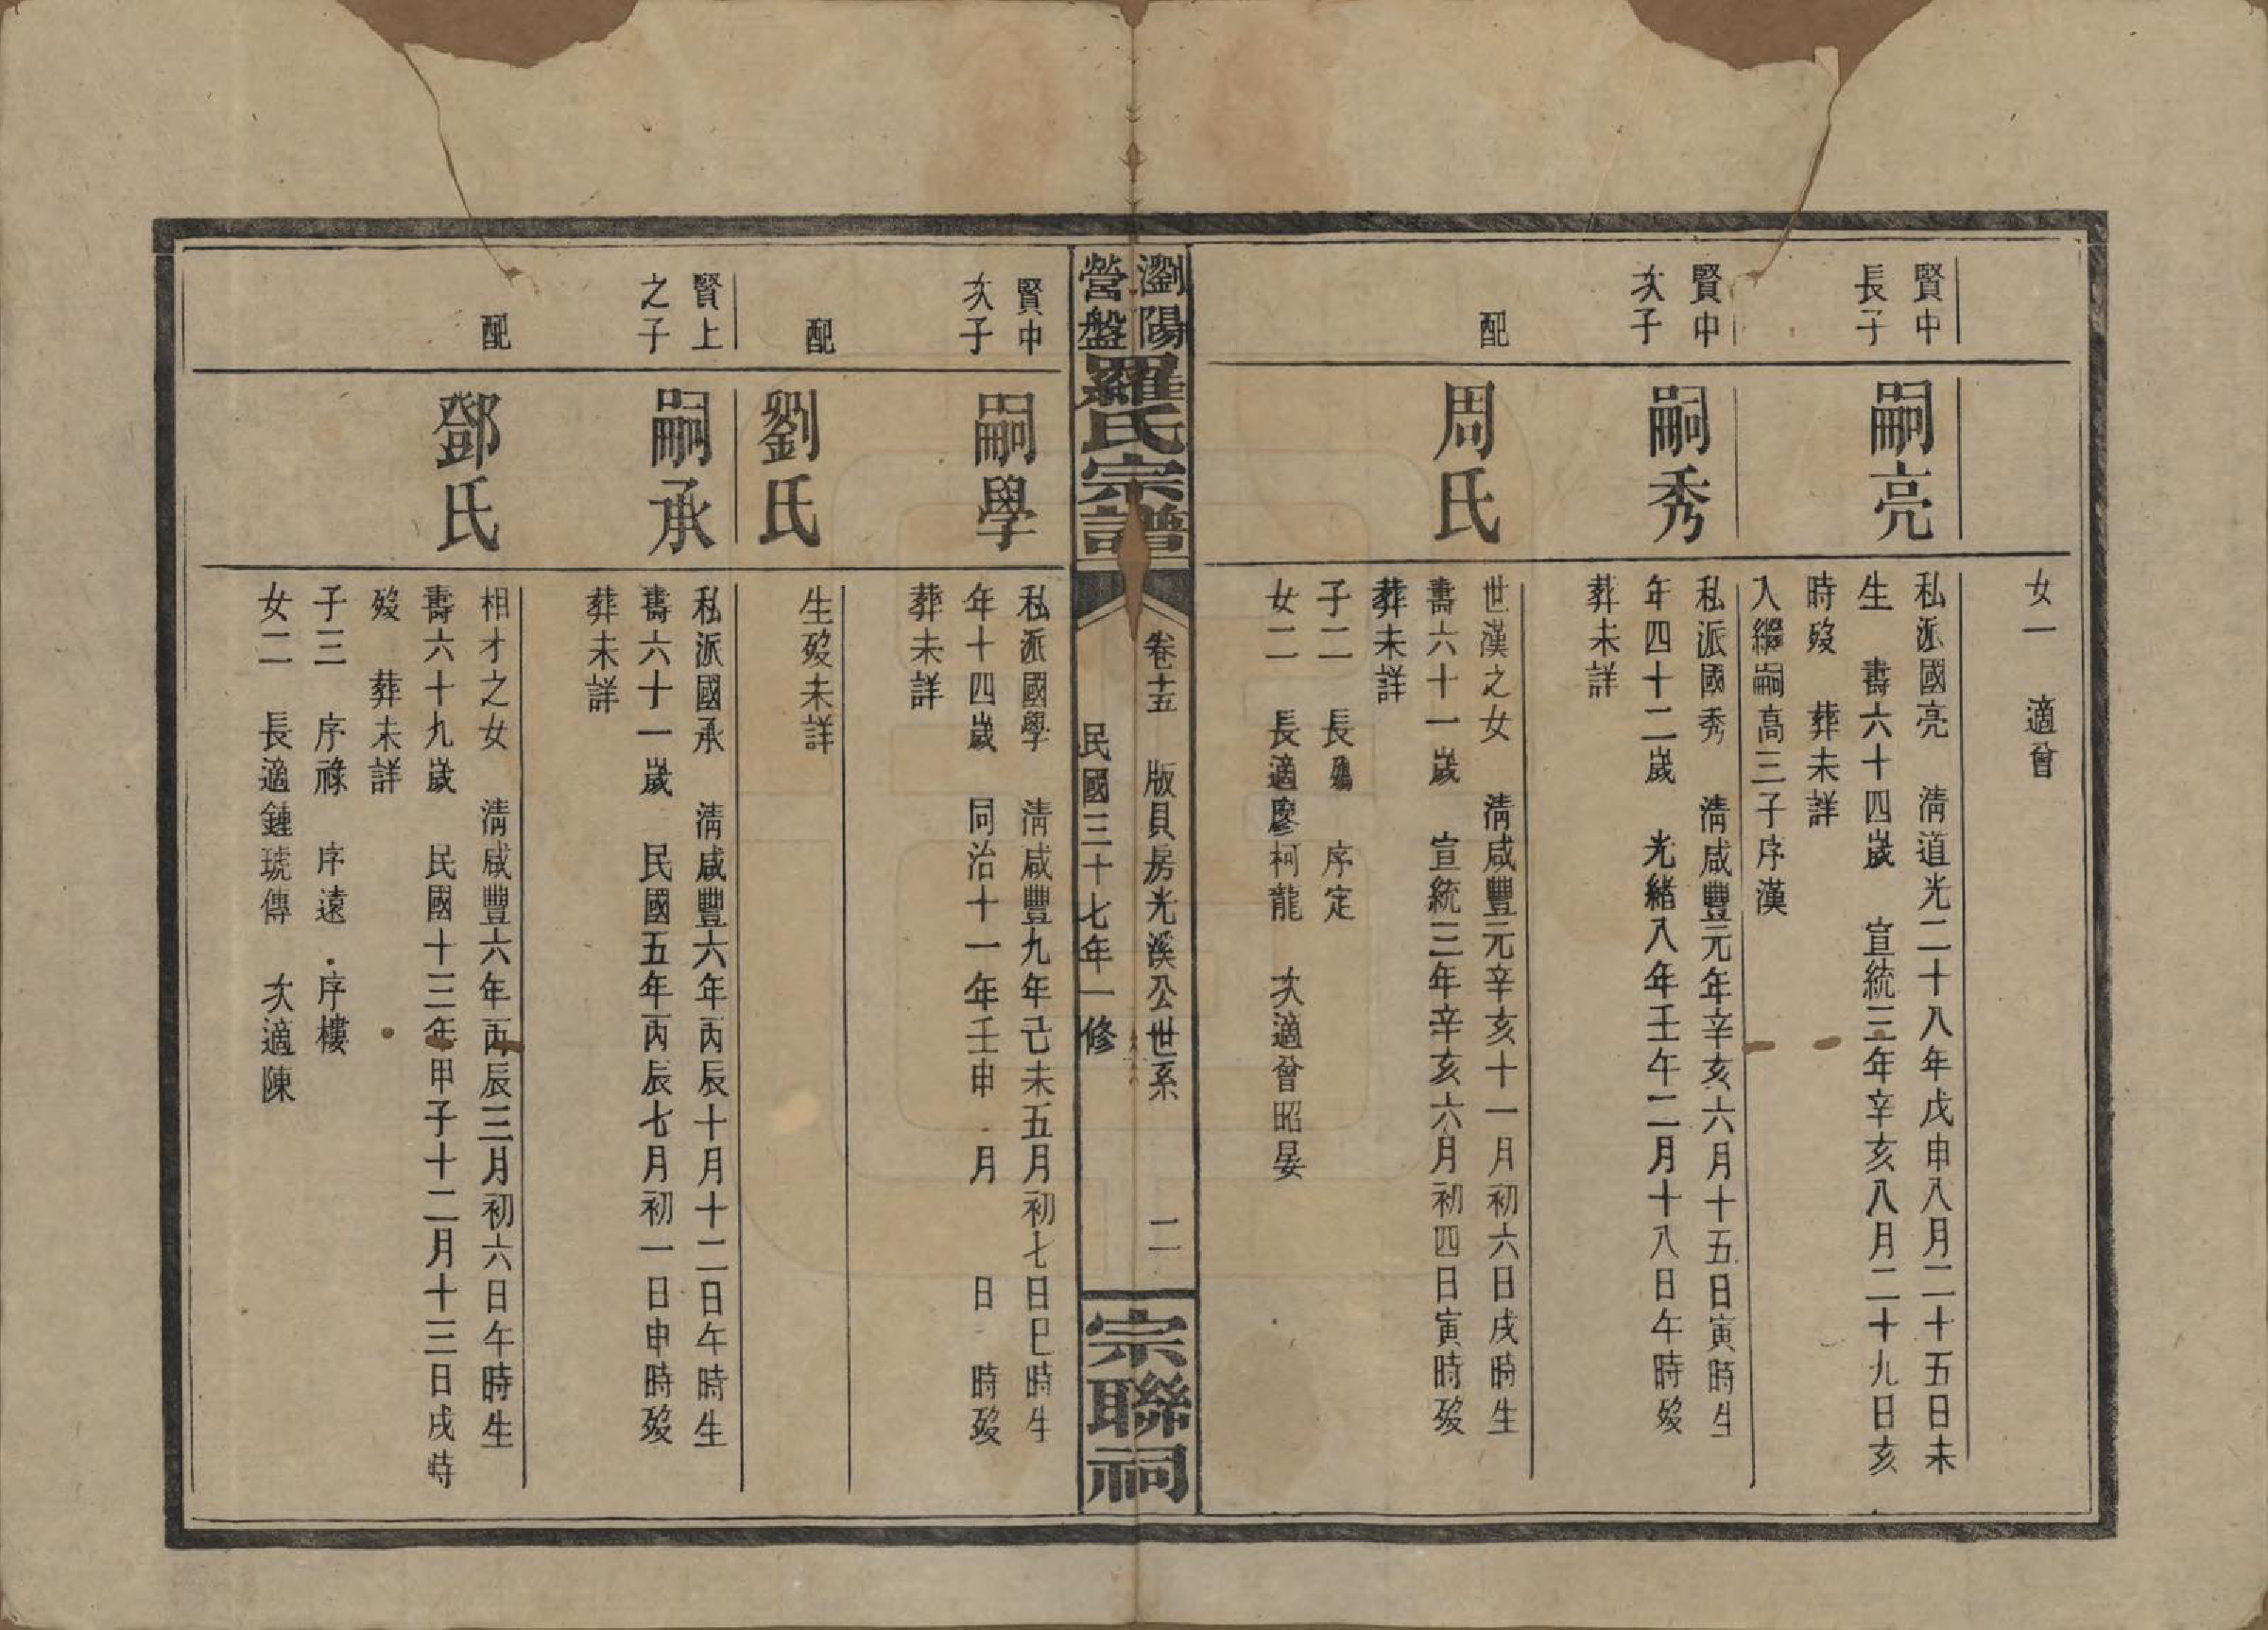 女一　適曾
賢中
長子
嗣亮
私派國亮　清道光二十八年戊申八月二十五日未
生　壽六十四歲　宣統三年辛亥八月二十九日亥
時歿　葬未詳
入繼嗣高三子序漢
賢中
次子
嗣秀
私派國秀　清咸豐元年辛亥六月十五日寅時生
年四十二歲　光緒八年壬午二月十八日午時歿
葬未詳
配
周氏
世漢之女　清咸豐元辛亥十一月初六日戌時生
壽六十一歲　宣統三年辛亥六月初四日寅時歿
葬未詳
子二　長殤　序定
女二　長適廖柯龍　次適曾昭晏
瀏陽
營盤
羅氏宗譜
卷十五　版貝房光溪公世系　二
民國三十七年一修
宗聯祠
賢中
次子
嗣學
私派國學　清咸豐九年己未五月初七日巳時生
年十四歲　同治十一年壬申　月　　日　時歿
葬未詳
配
劉氏
生歿未詳
賢上
之子
嗣承
私派國承　清咸豐六年丙辰十月十二日午時生
壽六十一歲　民國五年丙辰七月初一日申時歿
葬未詳
配
鄧氏
相才之女　清咸豐六年丙辰三月初六日午時生
壽六十九歲　民國十三年甲子十二月十三日戌時
歿　葬未詳
子三　序祿　序遠　序樓
女二　長適鍾琥傳　次適陳